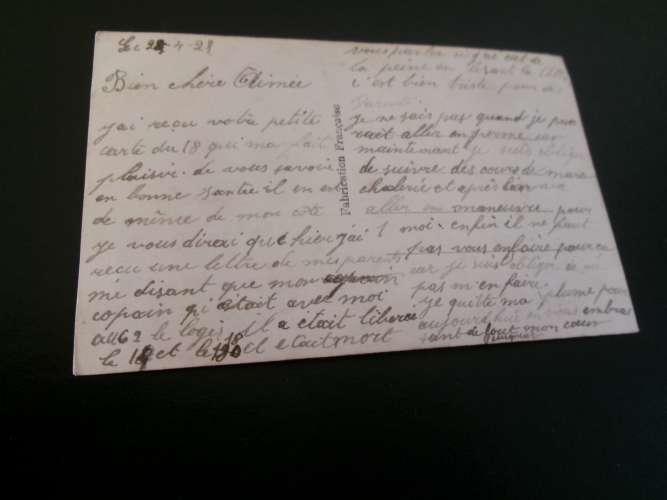 Le 28-4-28
Bien chère Aimée
j'ai reçu votre petite
carte du 18 qui ma fait
plaisir. de vous savoir
en bonne santée il en est
de même de mon côté
je vous dirai que hier j'ai
reçu une lettre de mes parents
me disant que mon
copain qi était avec moi
au 62 le logis, il a était liberée
le et le il etait mort
Fabrication Française
vous
la peine en lisant
c'est bien triste pour
parents
je ne sais pas quand je pou
rait aller en perme car
maintenant je suis oblige
de suivre des cours de mare
chalerie et après l'on va
aller en maneuvre pour
1 moi. enfin il ne faut
pas vous enfaire pour ca
car je suis obligé
pas m'en faire.
je quitte ma plume pour
aujourd'hui en vous embras
sant de tout mon cœur